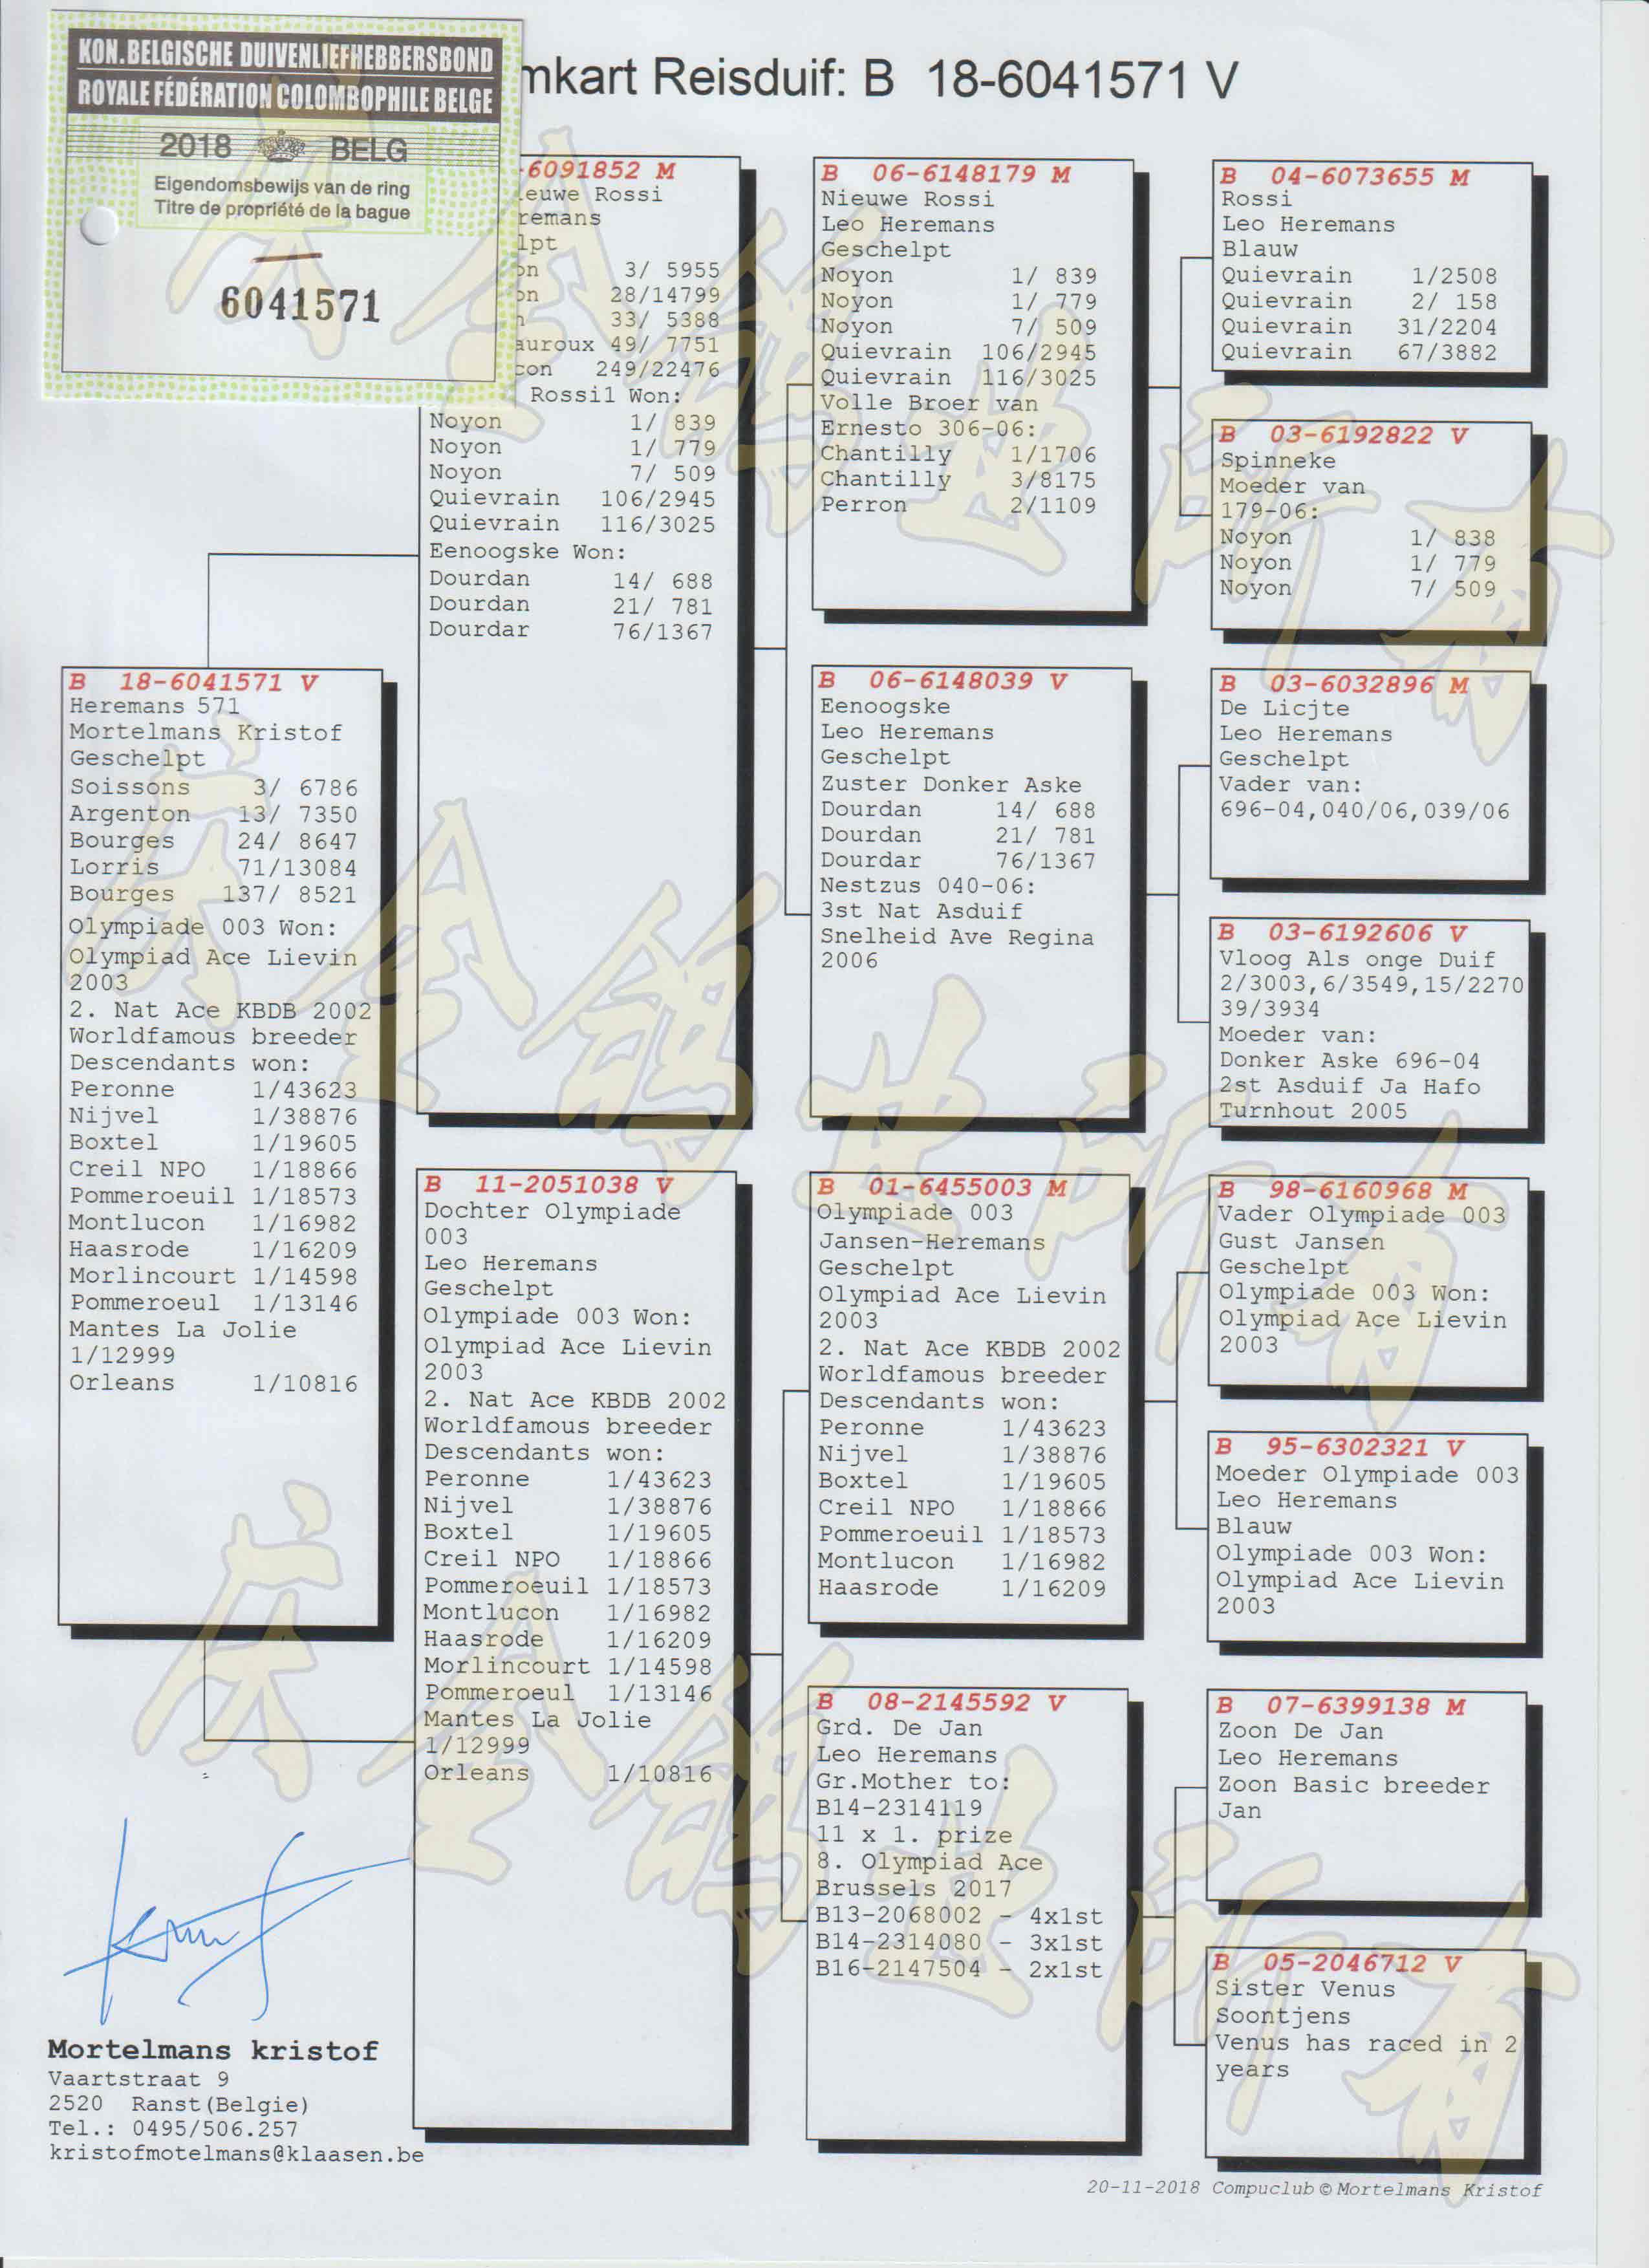 KON.BELGISCHE DUIVENLIEFHEBBERSBOND
ROYALE FÉDÉRATION COLOMBOPHILE BELGE
2018 BELG
Eigendomsbewijs van de ring
Titre de propriété de la bague
6041571
mkart Reisduif: B 18-6041571 V
B 18-6041571 V
Heremans 571
Mortelmans Kristof
Geschelpt
Soissons 3/ 6786
Argenton 13/ 7350
Bourges 24/ 8647
Lorris 71/13084
Bourges 137/ 8521
Olympiade 003 Won:
Olympiad Ace Lievin
2003
2. Nat Ace KBDB 2002
Worldfamous breeder
Descendants won:
Peronne 1/43623
Nijvel 1/38876
Boxtel 1/19605
Creil NPO 1/18866
Pommeroeuil 1/18573
Montlucon 1/16982
Haasrode 1/16209
Morlincourt 1/14598
Pommeroeul 1/13146
Mantes La Jolie
1/12999
Orleans 1/10816
-6091852 M
euwe Rossi
remans
lpt
on 3/ 5955
on 28/14799
n 33/ 5388
auroux 49/ 7751
con 249/22476
Rossil Won:
Noyon 1/ 839
Noyon 1/ 779
Noyon 7/ 509
Quievrain 106/2945
Quievrain 116/3025
Eenoogske Won:
Dourdan 14/ 688
Dourdan 21/ 781
Dourdar 76/1367
B 11-2051038 V
Dochter Olympiade
003
Leo Heremans
Geschelpt
Olympiade 003 Won:
Olympiad Ace Lievin
2003
2. Nat Ace KBDB 2002
Worldfamous breeder
Descendants won:
Peronne 1/43623
Nijvel 1/38876
Boxtel 1/19605
Creil NPO 1/18866
Pommeroeuil 1/18573
Montlucon 1/16982
Haasrode 1/16209
Morlincourt 1/14598
Pommeroeul 1/13146
Mantes La Jolie
1/12999
Orleans 1/10816
B 06-6148179 M
Nieuwe Rossi
Leo Heremans
Geschelpt
Noyon 1/ 839
Noyon 1/ 779
Noyon 7/ 509
Quievrain 106/2945
Quievrain 116/3025
Volle Broer van
Ernesto 306-06:
Chantilly 1/1706
Chantilly 3/8175
Perron 2/1109
B 06-6148039 V
Eenoogske
Leo Heremans
Geschelpt
Zuster Donker Aske
Dourdan 14/ 688
Dourdan 21/ 781
Dourdar 76/1367
Nestzus 040-06:
3st Nat Asduif
Snelheid Ave Regina
2006
B 01-6455003 M
Olympiade 003
Jansen-Heremans
Geschelpt
Olympiad Ace Lievin
2003
2. Nat Ace KBDB 2002
Worldfamous breeder
Descendants won:
Peronne 1/43623
Nijvel 1/38876
Boxtel 1/19605
Creil NPO 1/18866
Pommeroeuil 1/18573
Montlucon 1/16982
Haasrode 1/16209
B 08-2145592 V
Grd. De Jan
Leo Heremans
Gr.Mother to:
B14-2314119
11 x 1. prize
8. Olympiad Ace
Brussels 2017
B13-2068002 - 4x1st
B14-2314080 - 3x1st
B16-2147504 - 2x1st
B 04-6073655 M
Rossi
Leo Heremans
Blauw
Quievrain 1/2508
Quievrain 2/ 158
Quievrain 31/2204
Quievrain 67/3882
B 03-6192822 V
Spinneke
Moeder van
179-06:
Noyon 1/ 838
Noyon 1/ 779
Noyon 7/ 509
B 03-6032896 M
De Licjte
Leo Heremans
Geschelpt
Vader van:
696-04,040/06,039/06
B 03-6192606 V
Vloog Als onge Duif
2/3003,6/3549,15/2270
39/3934
Moeder van:
Donker Aske 696-04
2st Asduif Ja Hafo
Turnhout 2005
B 98-6160968 M
Vader Olympiade 003
Gust Jansen
Geschelpt
Olympiade 003 Won:
Olympiad Ace Lievin
2003
B 95-6302321 V
Moeder Olympiade 003
Leo Heremans
Blauw
Olympiade 003 Won:
Olympiad Ace Lievin
2003
B 07-6399138 M
Zoon De Jan
Leo Heremans
Zoon Basic breeder
Jan
B 05-2046712 V
Sister Venus
Soontjens
Venus has raced in 2
years
Mortelmans kristof
Vaartstraat 9
2520 Ranst(Belgie)
Tel.: 0495/506.257
kristofmotelmans@klaasen.be
20-11-2018 Compuclub © Mortelmans Kristof